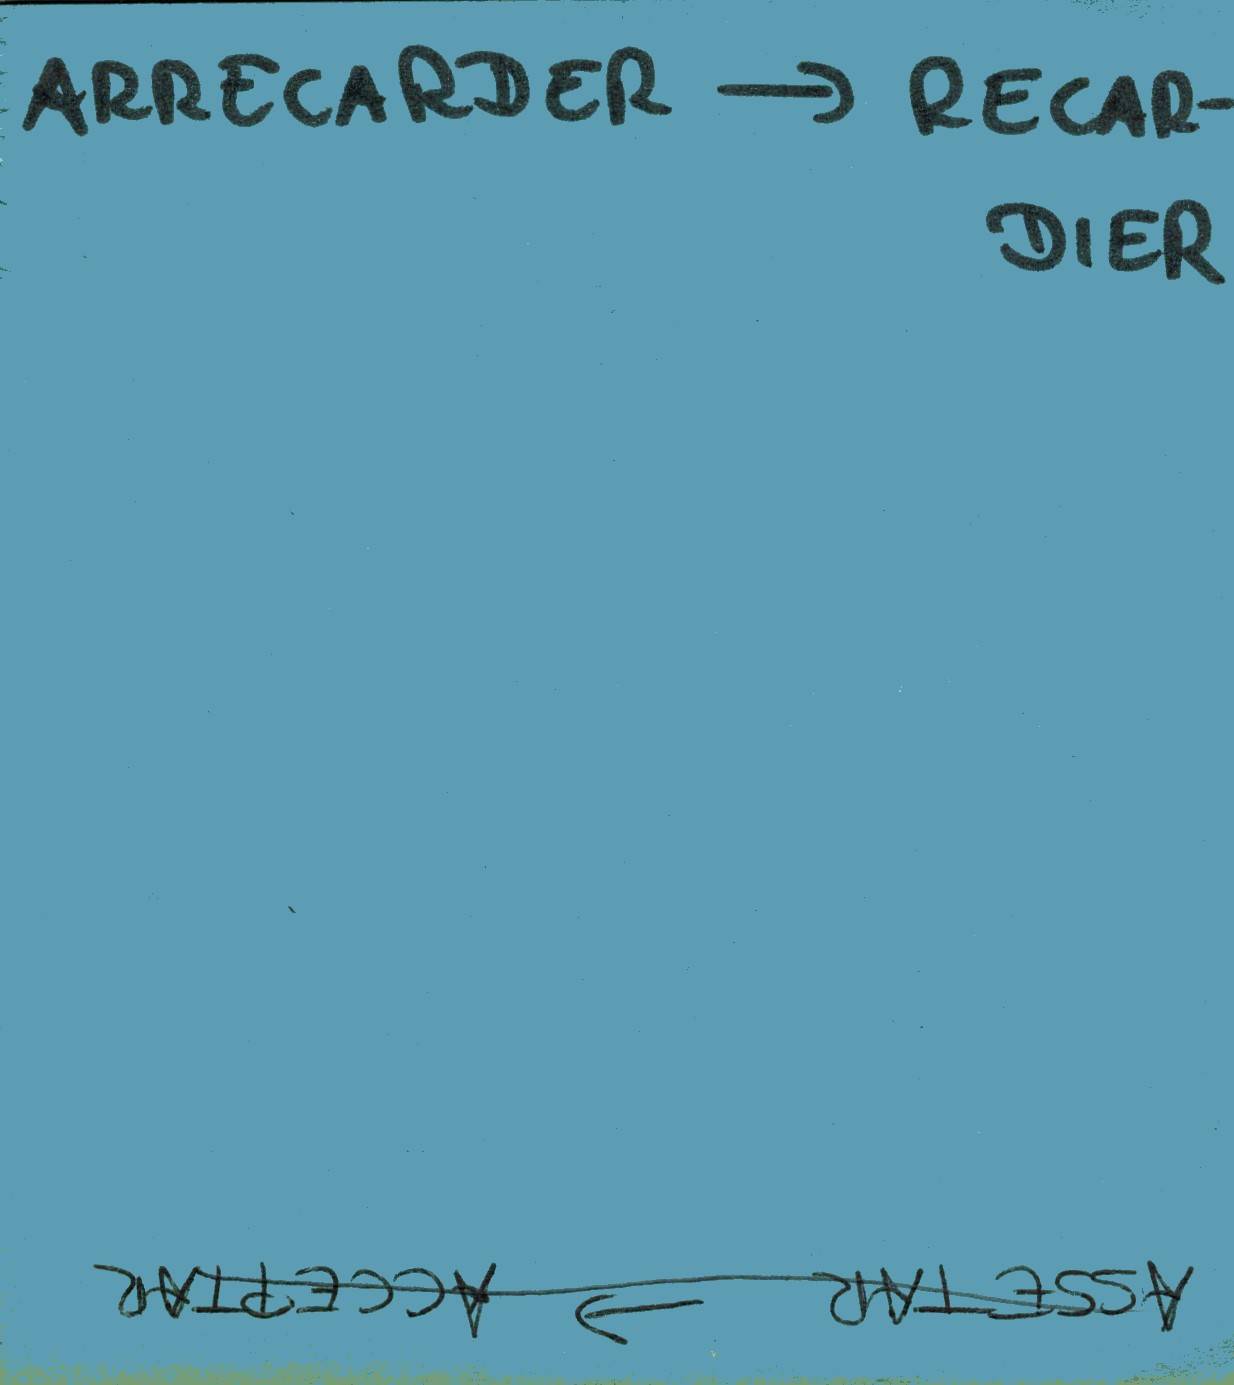 ARRECARDER → RECAR-
DIER
ASSETAR → ACCEPTAR